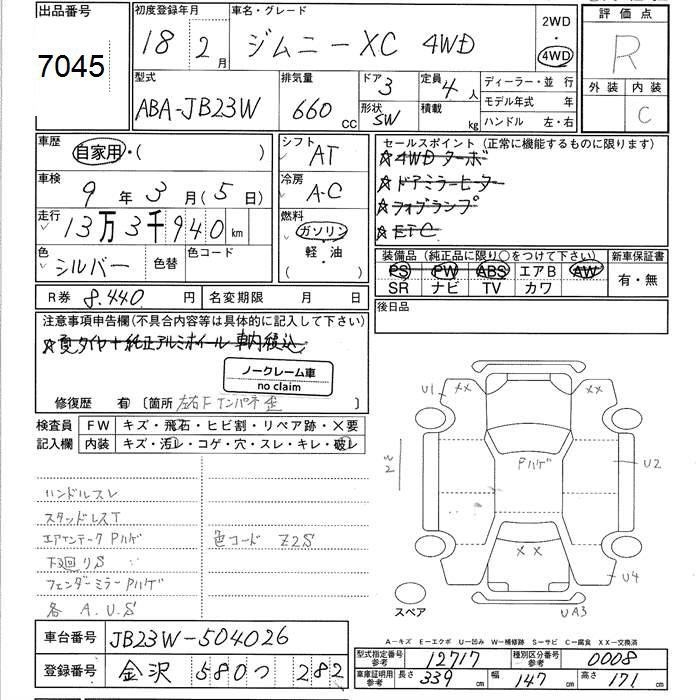 出品番号
7045
初度登録年月
18 2月
車名・グレード
ジムニー XC 4WD
2WD
・
4WD
評価点
R
外装 内装
C
型式
ABA-JB23W
排気量
660 CC
ドア
3
形状
SW
定員
4人
積載
kg
ディーラー・並行
モデル年式 年
ハンドル 左・右
車歴
自家用・( )
車検
9年3月(5日)
走行
13万3千940km
色
シルバー
色替
色コード
シフト
AT
冷房
A-C
燃料
ガソリン
軽・油
( )
セールスポイント(正常に機能するものに限ります)
☆4WD ターボ
☆ドアミラーヒーター
☆フォグランプ
☆ETC
装備品(純正品に限り○をつけて下さい)
PS PW ABS エアB AW
SR ナビ TV カワ
新車保証書
有・無
R券 8,440円
名変期限 月 日
後日品
注意事項申告欄(不具合内容等は具体的に記入して下さい)
☆夏タイヤ+純正アルミホイール 車内積込
ノークレーム車
no claim
修復歴 有 〔箇所 左右Fインパネ歪 〕
検査員
記入欄
FW キズ・飛石・ヒビ割・リペア跡・X要
内装 キズ・汚レ・コゲ・穴・スレ・キレ・破レ
ハンドルスレ
スタッドレスT
エアインテーク Pハゲ
下廻りS
フェンダーミラーPハゲ
各 A.U.S
色コード Z2S
U1
XX
XX
Pハゲ
U2
XX
U4
UA3
スペア
A－キズ E－エクボ U－凹み W－補修跡 S－サビ C－腐食 XX－交換済
車台番号 JB23W-504026
登録番号 金沢 580 つ 282
型式指定番号
参考
12717
種別区分番号
参考
0008
車庫証明用
参考
長さ 339cm 幅 147cm 高さ 171cm